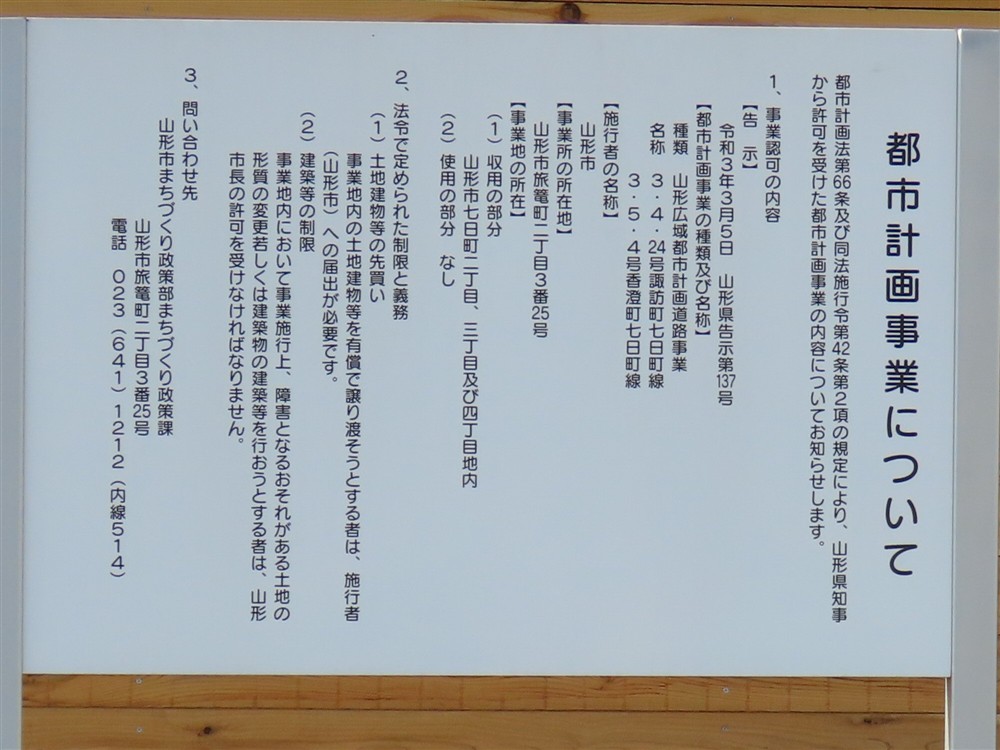 都市計画事業について
都市計画法第66条及び同法施行令第42条第２項の規定により、山形県知事
から許可を受けた都市計画事業の内容についてお知らせします。
１、事業認可の内容
【告　示】
令和３年３月５日　山形県告示第137号
【都市計画事業の種類及び名称】
種類　山形広域都市計画道路事業
名称　３・４・24号諏訪町七日町線
３・５・４号香澄町七日町線
【施行者の名称】
山形市
【事業所の所在地】
山形市旅篭町二丁目３番25号
【事業地の所在】
（１）収用の部分
山形市七日町二丁目、三丁目及び四丁目地内
（２）使用の部分　なし
２、法令で定められた制限と義務
（１）土地建物等の先買い
事業地内の土地建物等を有償で譲り渡そうとする者は、施行者
（山形市）への届出が必要です。
（２）建築等の制限
事業地内において事業施行上、障害となるおそれがある土地の
形質の変更若しくは建築物の建築等を行おうとする者は、山形
市長の許可を受けなければなりません。
３、問い合わせ先
山形市まちづくり政策部まちづくり政策課
山形市旅篭町二丁目３番25号
電話　０２３（６４１）１２１２（内線５１４）